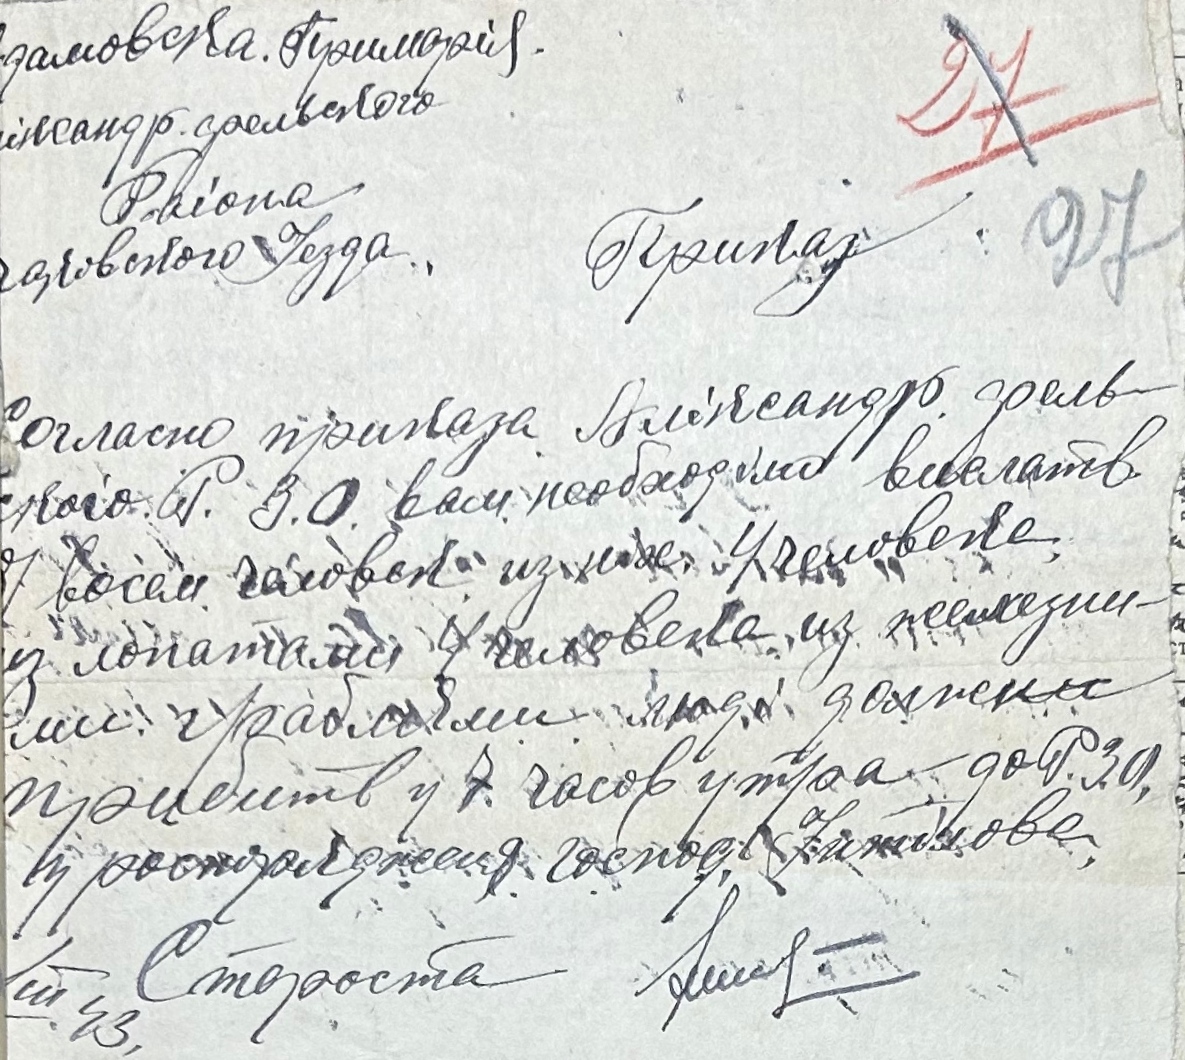 дамовска. Примарія.
ліксандр. фельского
27
Раіона
27
чаковского Уезда.
Приказ
Согласно приказа Аліксандр. фель-
ского. Р. З.О. вам необходімо вислать
восем человек из них 4 человека,
из лопатами 4 человека из железни-
ми граблями люді должни
прибить у 7 часов утра до Р.З.О,
у роспоряджения господ.
Староста
III 43,